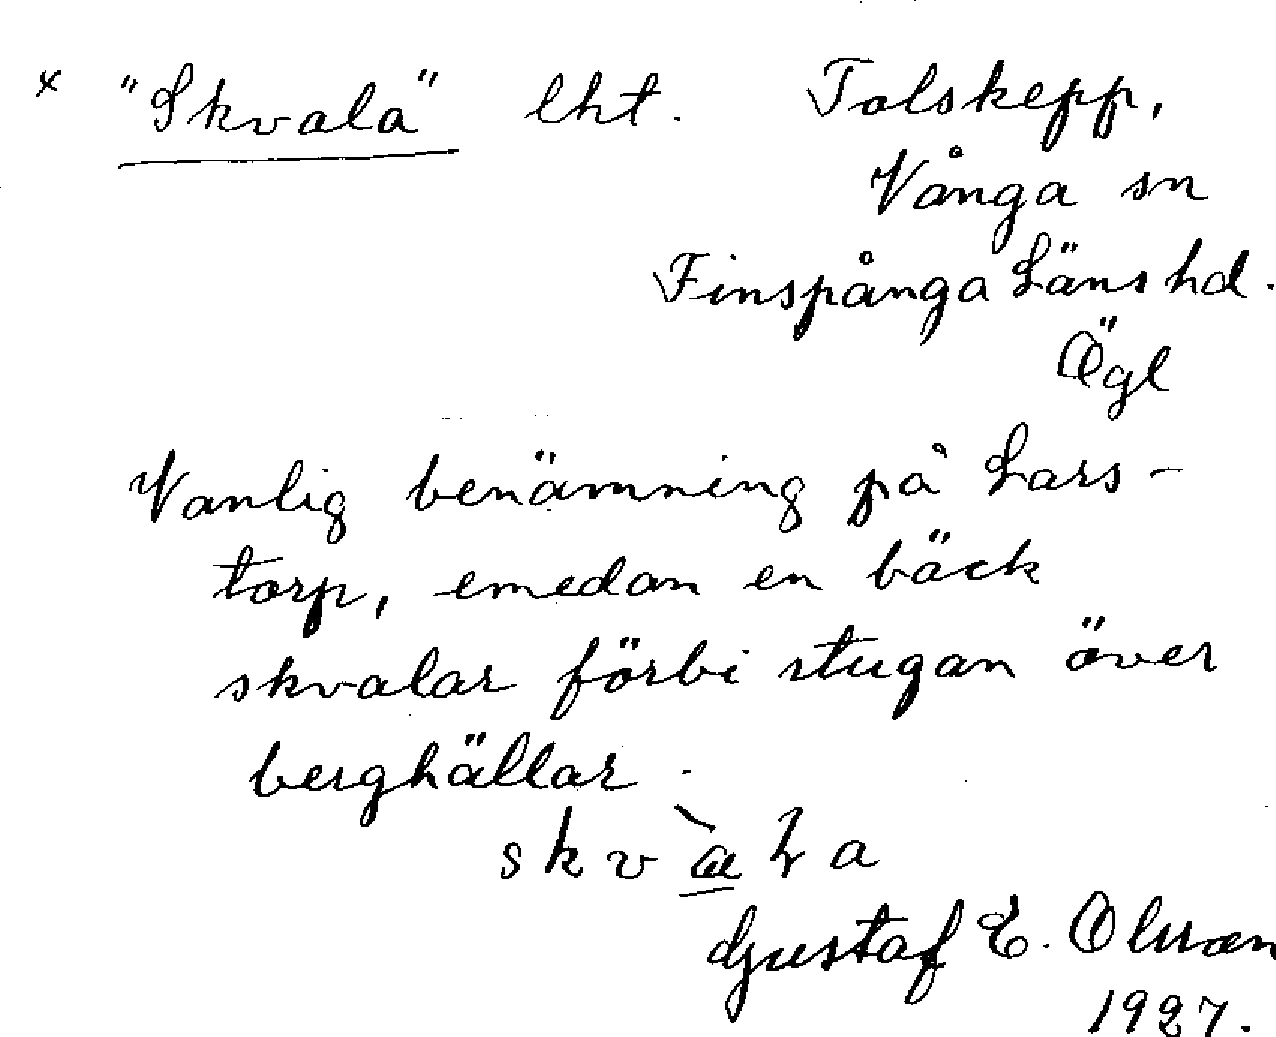 × "Skvala" lht. Tolskepp,
Vånga sn
Finspånga Läns hd.
Ögl
Vanlig benämning på Lars-
torp, emedan en bäck
skvalar förbi stugan över
berghällar.
Gustaf E. Olsson
1927.